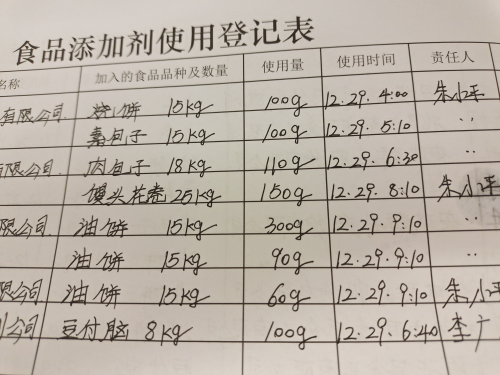 食品添加剂使用登记表
名称 加入的食品品种及数量 使用量 使用时间 责任人
有限公司 烧饼 15kg 100g 12.29.4:00 朱小平
素包子 15kg 100g 12.29.5:10 ..
有限公司 肉包子 18kg 110g 12.29.6:30 ..
馒头花卷 25kg 150g 12.29.8:10 朱小平
限公司 油饼 15kg 300g 12.29.9:10 ..
油饼 15kg 90g 12.29.9:10 ..
限公司 油饼 15kg 60g 12.29.9:10 朱小平
公司 豆付脑 8kg 100g 12.29.6:40 李广